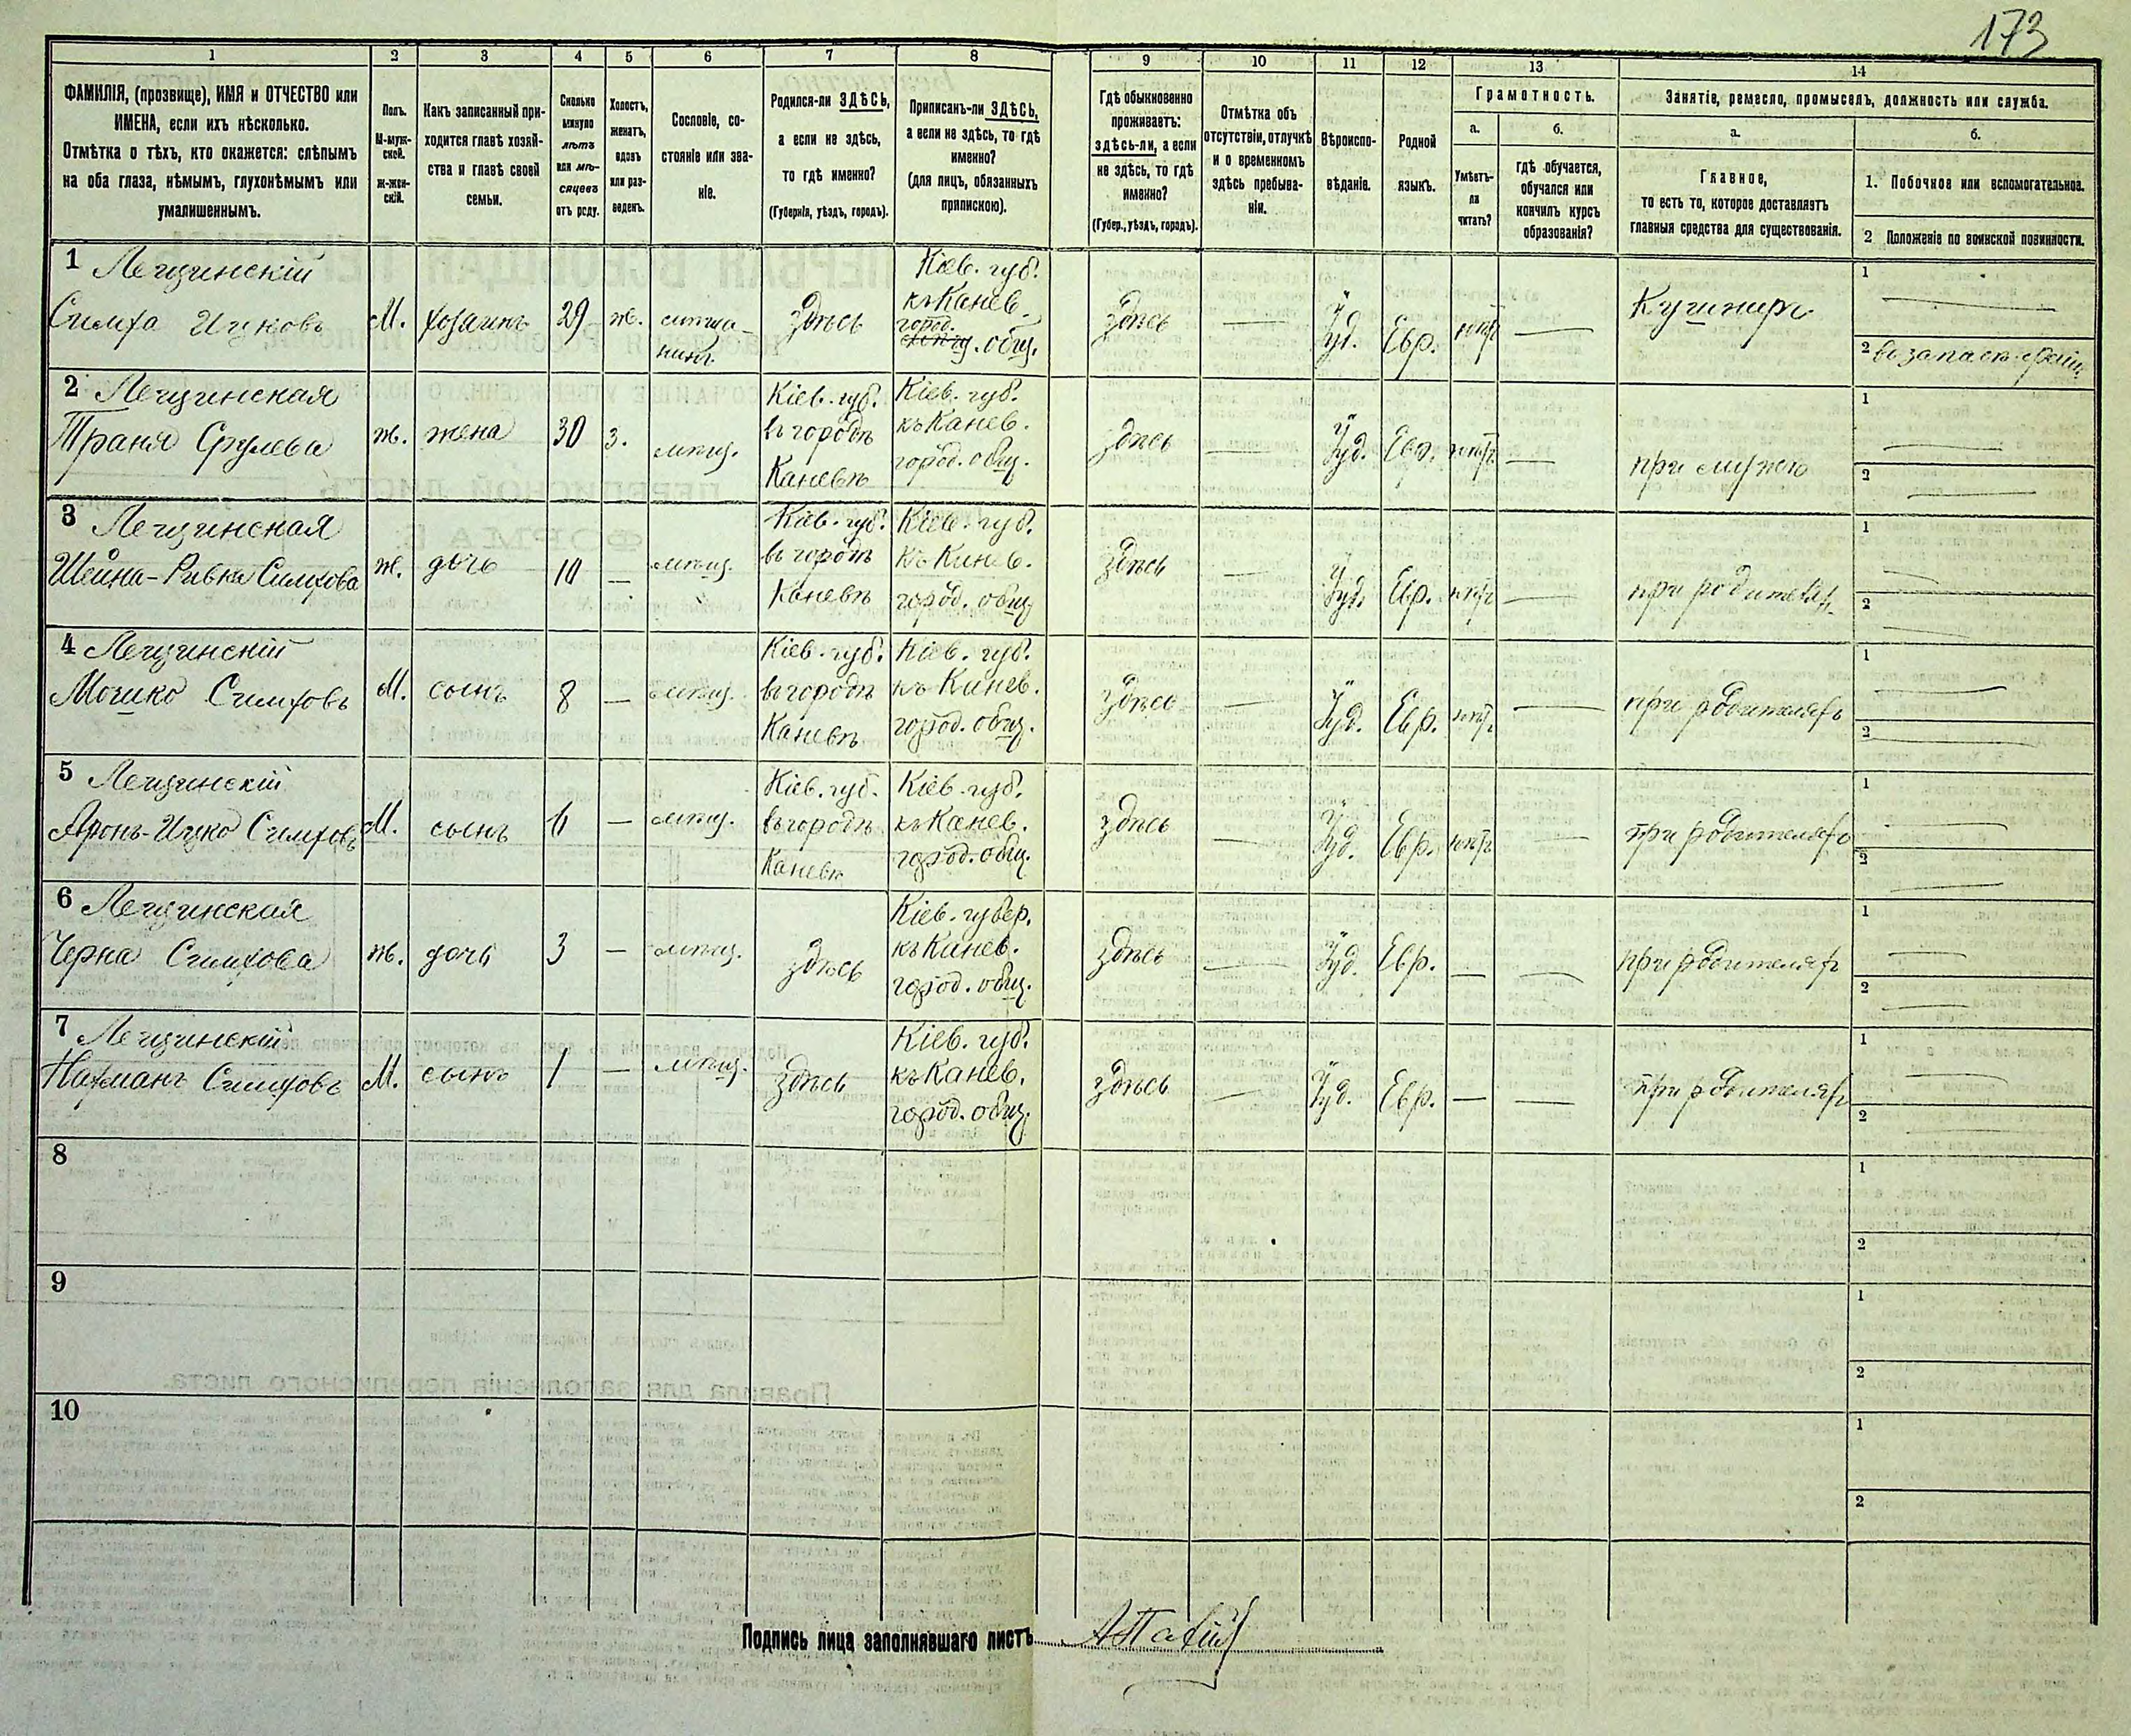 173
1 2 3 4 5 6 7 8 9 10 11 12 13 14
ФАМИЛІЯ, (прозвище), ИМЯ и ОТЧЕСТВО или
ИМЕНА, если ихъ нѣсколько.
Отмѣтка о тѣхъ, кто окажется: слѣпымъ
на оба глаза, нѣмымъ, глухонѣмымъ или
умалишеннымъ.
Полъ.
М-муж-
ской.
Ж-жен-
скій.
Какъ записанный при-
ходится главѣ хозяй-
ства и главѣ своей
семьи.
Сколько
минуло
лѣтъ
или мѣ-
сяцевъ
отъ роду.
Холостъ,
женатъ,
вдовъ
или раз-
веденъ.
Сословіе, со-
стояніе или зва-
ніе.
Родился-ли ЗДѢСЬ,
а если не здѣсь,
то гдѣ именно?
(Губернія, уѣздъ, городъ).
Приписанъ-ли ЗДѢСЬ,
а если не здѣсь, то гдѣ
именно?
(для лицъ, обязанныхъ
припискою).
Гдѣ обыкновенно
проживаетъ:
здѣсь-ли, а если
не здѣсь, то гдѣ
именно?
(Губер., уѣздъ, городъ).
Отмѣтка объ
отсутствіи, отлучкѣ
и о временномъ
здѣсь пребыва-
ніи.
Вѣроиспо-
вѣданіе.
Родной
языкъ.
Грамотность.
а.
Умѣетъ-
ли
читать?
б.
Гдѣ обучается,
обучался или
кончилъ курсъ
образованія?
Занятіе, ремесло, промыселъ, должность или служба.
а.
Главное,
то есть то, которое доставляетъ
главныя средства для существованія.
б.
1. Побочное или вспомогательное.
2 Положеніе по воинской повинности.
1 Лещинскій
Симха Ицковъ
М.
хозяинъ
29
ж.
мѣща-
нинъ
Здѣсь
Кіев. губ.
къ Канев.
город.
общ.
Здѣсь
—
Іуд.
Евр.
нѣтъ
—
Кушниръ
1 —
2 въ запасѣ арміи
2 Лещинская
Траня Срулева
ж.
жена
30
з.
мѣщ.
Кіев. губ.
въ городѣ
Каневѣ
Кіев. губ.
къ Канев.
город. общ.
здѣсь
—
Іуд.
Евр.
нѣтъ
—
при мужѣ
1 —
2 —
3 Лещинская
Шейна-Ривка Симхова
ж.
дочь
10
—
мѣщ.
Кіев. губ.
въ городѣ
Каневѣ
Кіев. губ.
къ Канев.
город. общ.
здѣсь
—
Іуд.
Евр.
нѣтъ
—
при родителях
1 —
2 —
4 Лещинскій
Мошко Симховъ
М.
сынъ
8
—
мѣщ.
Кіев. губ.
въ городѣ
Каневѣ
Кіев. губ.
къ Канев.
город. общ.
здѣсь
—
Іуд.
Евр.
нѣтъ
—
при родителяхъ
1 —
2 —
5 Лещинскій
Аронъ-Ицко Симховъ
М.
сынъ
6
—
мѣщ.
Кіев. губ.
въ городѣ
Каневѣ
Кіев. губ.
къ Канев.
город. общ.
здѣсь
—
Іуд.
Евр.
нѣтъ
—
при родителяхъ
1 —
2 —
6 Лещинская
Черна Симхова
ж.
дочь
3
—
мѣщ.
здѣсь
Кіев. губер.
къ Канев.
город. общ.
здѣсь
—
Іуд.
Евр.
—
—
при родителяхъ
1 —
2 —
7 Лещинскій
Нахманъ Симховъ
М.
сынъ
1
—
мѣщ.
здѣсь
Кіев. губ.
къ Канев.
город. общ.
здѣсь
—
Іуд.
Евр.
—
—
при родителяхъ
1 —
2 —
8
1
2
9
1
2
10
1
2
Подпись лица заполнявшаго листъ